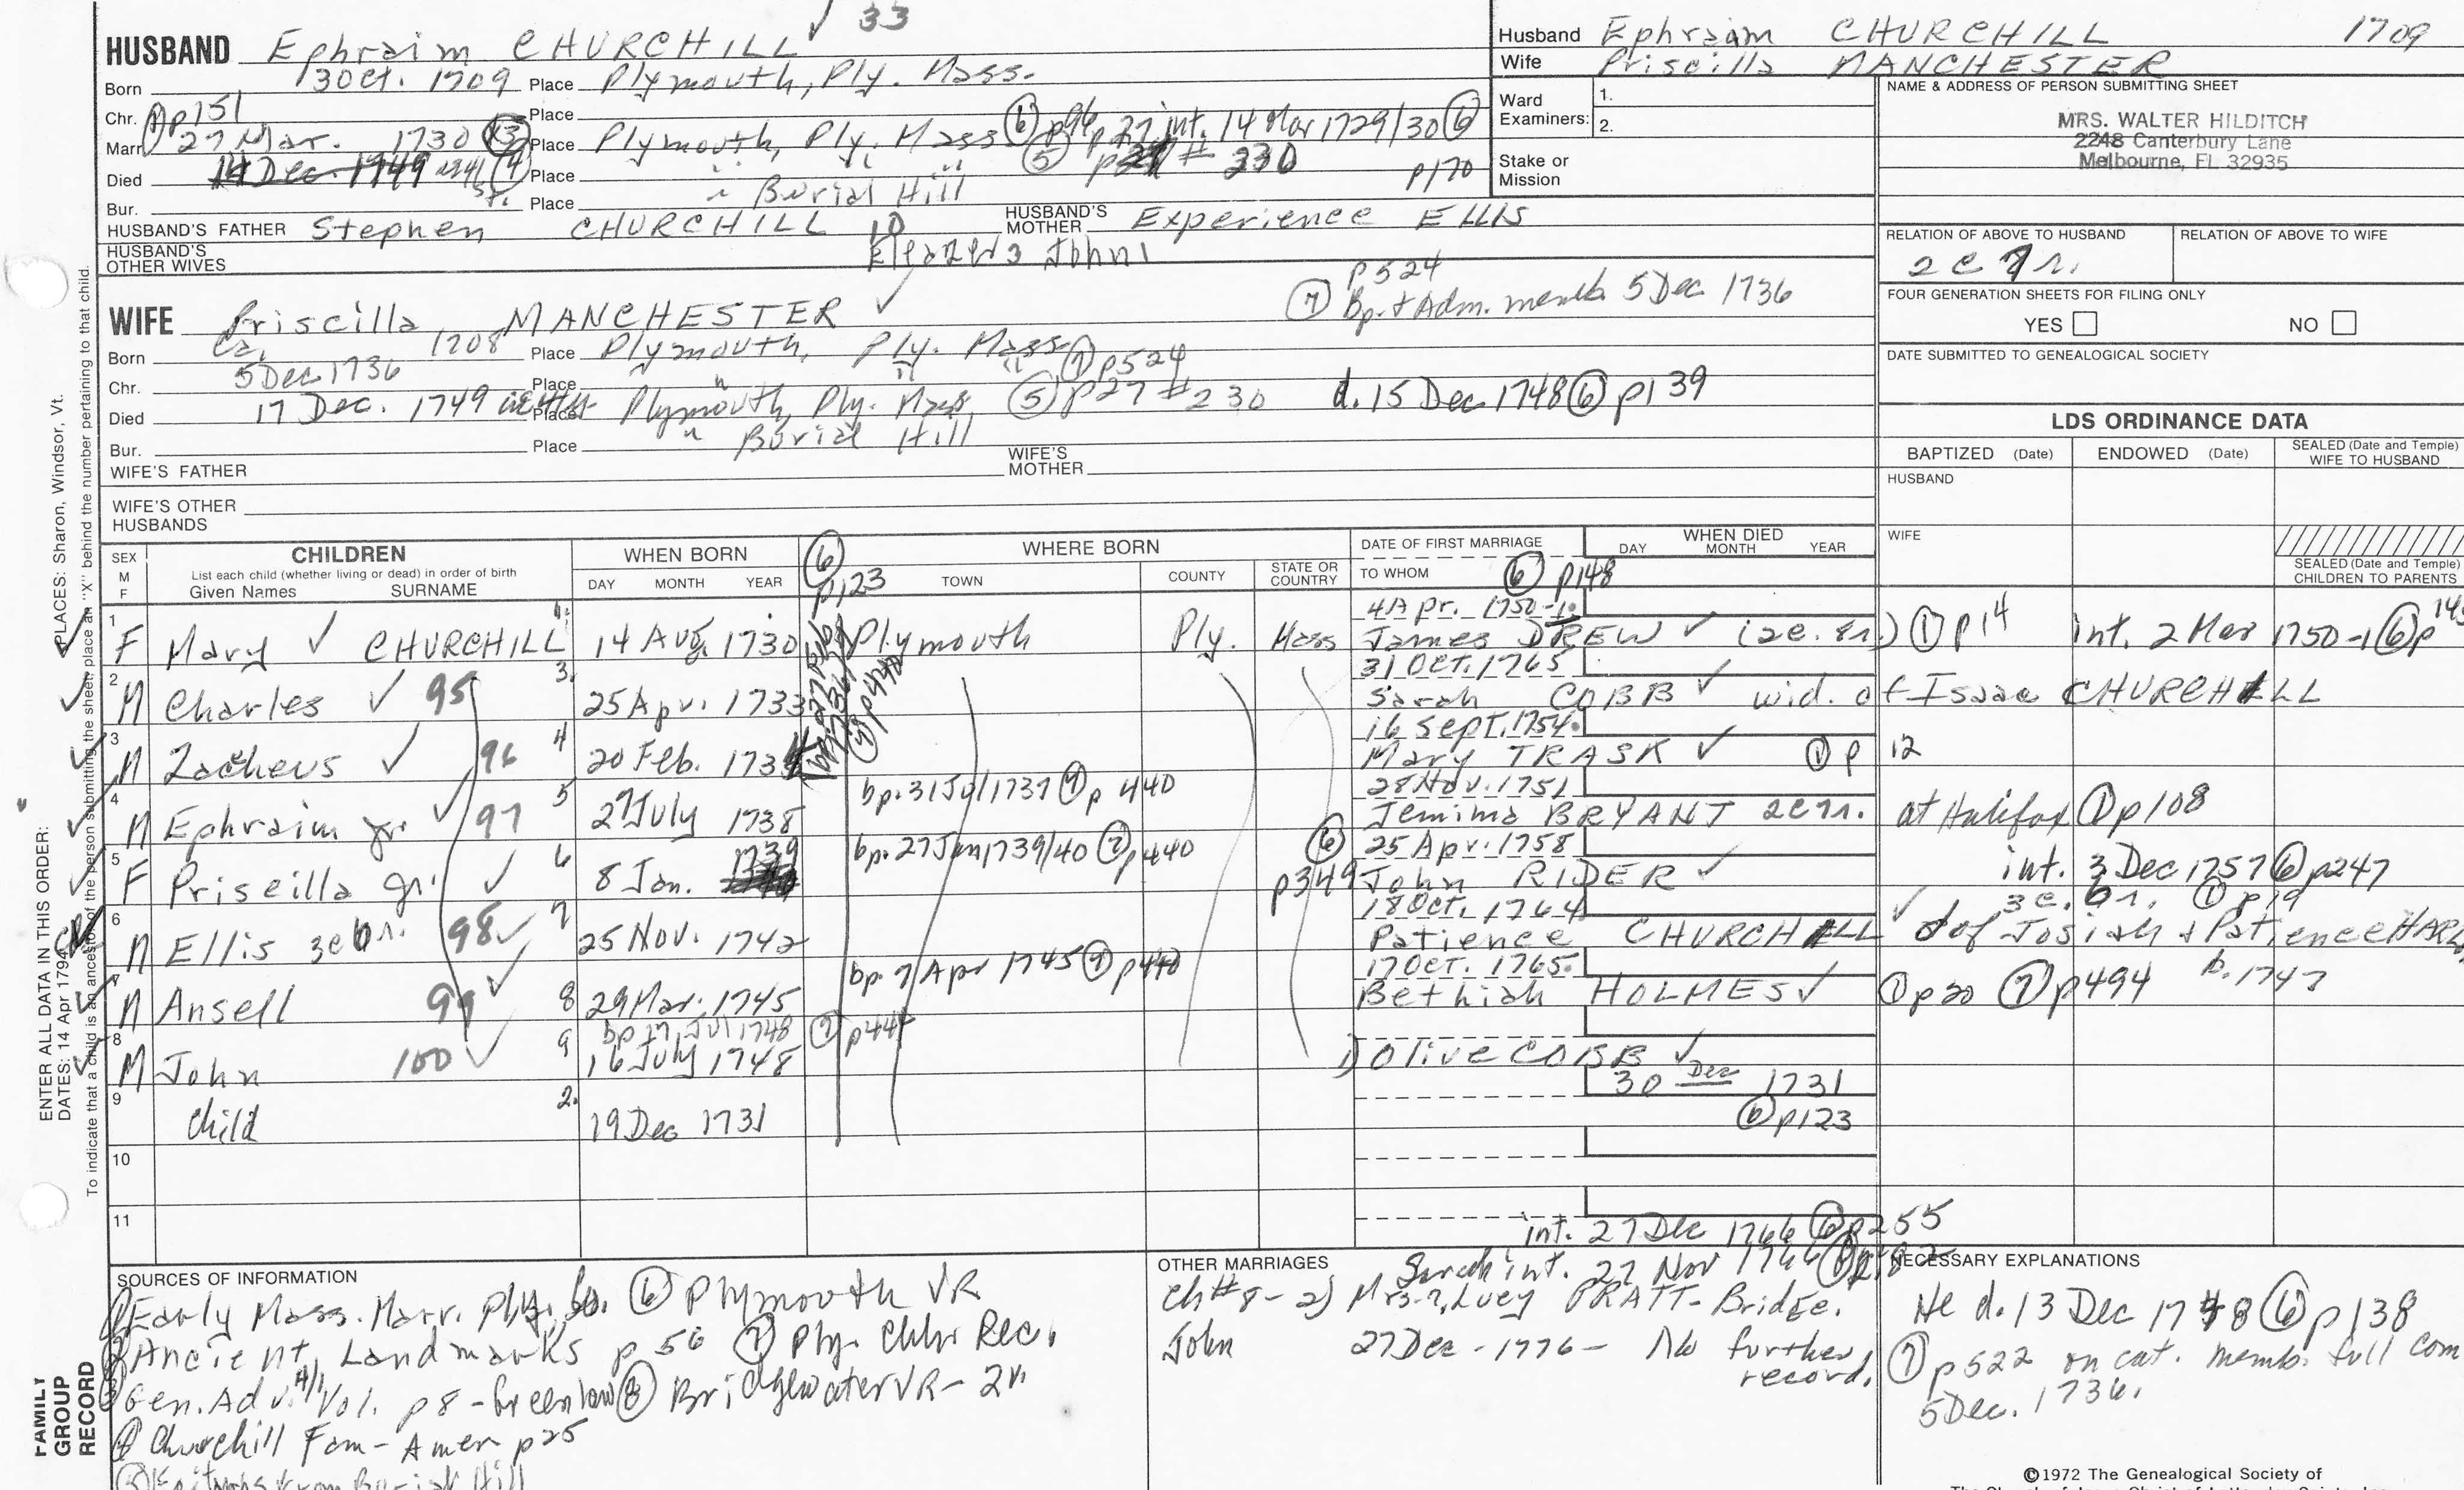 33
HUSBAND Ephraim CHURCHILL
Born 13 Oct. 1709 Place Plymouth, Ply. Mass.
Chr. Place
① p151
Marr. 27 Mar. 1730 Place Plymouth, Ply. Mass ⑥ p96 p27 int. 14 Mar 1729/30 ⑥
Died 14 Dec. 1749 Place " " " ⑤ # 230 p170
Bur. Place " Burial Hill
HUSBAND'S FATHER Stephen CHURCHILL HUSBAND'S MOTHER Experience ELLIS
HUSBAND'S OTHER WIVES
Eleazer3 John1
Husband Ephraim CHURCHILL 1709
Wife Priscilla MANCHESTER
Ward Examiners: 1.
2.
Stake or Mission
NAME & ADDRESS OF PERSON SUBMITTING SHEET
MRS. WALTER HILDITCH
2248 Canterbury Lane
Melbourne, FL 32935
RELATION OF ABOVE TO HUSBAND RELATION OF ABOVE TO WIFE
2c 7r.
FOUR GENERATION SHEETS FOR FILING ONLY
YES NO
DATE SUBMITTED TO GENEALOGICAL SOCIETY
p524
⑦ Bp. + Adm. memb. 5 Dec 1736
WIFE Priscilla MANCHESTER
Born Ca. 1708 Place Plymouth, Ply. Mass
Chr. 5 Dec 1736 Place " " " ⑦ p524
Died 17 Dec. 1749 Place Plymouth, Ply. Mass, ⑤ p27 # 230 d. 15 Dec 1748 ⑥ p139
Bur. Place " Burial Hill
WIFE'S FATHER WIFE'S MOTHER
WIFE'S OTHER HUSBANDS
LDS ORDINANCE DATA
BAPTIZED (Date) ENDOWED (Date) SEALED (Date and Temple) WIFE TO HUSBAND
HUSBAND
WIFE
SEALED (Date and Temple) CHILDREN TO PARENTS
SEX M F
CHILDREN
List each child (whether living or dead) in order of birth
Given Names SURNAME
WHEN BORN
DAY MONTH YEAR
WHERE BORN
TOWN COUNTY STATE OR COUNTRY
DATE OF FIRST MARRIAGE
TO WHOM
WHEN DIED
DAY MONTH YEAR
⑥ p123
⑥ p148
4 Apr. 1750-1
1 F Mary CHURCHILL 1. 14 Aug. 1730 Plymouth Ply. Mass James DREW (2c. 8r.) ① p14 int. 2 Mar 1750-1 ⑥ p
31 Oct. 1765
2 M Charles 95 3. 25 Apr. 1733 Sarah COBB wid. of Isaac CHURCHILL
16 Sept. 1754
3 M Zacheus 96 4 20 Feb. Mary TRASK ① p 12
bp. 31 Jul 1737 ⑦ p 440
28 Nov. 1751
4 M Ephraim jr 97 5 27 July 1738 Jemima BRYANT 2c 7r. at Halifax ① p108
bp. 27 Jan 1739/40 ⑦ p440
⑥ p349 25 Apr. 1758
5 F Priscilla jr. 6 8 Jan. 1739 John RIDER int. 3 Dec 1757 ⑥ p247
18 Oct. 1764 3c. 6r. ① p19
6 M Ellis 3c 6r. 98 7 25 Nov. 1742 Patience CHURCHILL d of Josiah + Patience
b. 1747
bp. 7 Apr 1745 ⑦ p440
17 Oct. 1765
7 M Ansell 99 8 29 Mar. 1745 Bethiah HOLMES ① p20 ⑦ p494
bp 17 Jul 1748 ⑦ p444
8 M John 100 9 16 July 1748 1) Olive COBB
9 child 2. 19 Dec 1731 30 Dec 1731
⑥ p123
10
11
int. 27 Dec 1766 ⑥ p255
SOURCES OF INFORMATION
① Early Mass. Marr. Ply. Co. ⑥ Plymouth VR
② Ancient Landmarks p 56 ⑦ Ply. Chh. Rec.
③ Gen. Adv. Vol. p8 - Greenlaw ⑧ Bridgewater VR - 2v
④ Churchill Fam - Amer p25
⑤ Epitaphs from Burial Hill
OTHER MARRIAGES Sarah int. 27 Nov
Ch #8 - 2) Mrs. ?, Lucy PRATT - Bridge.
John 27 Dec - 1776 - No further record.
NECESSARY EXPLANATIONS
He d. 13 Dec 1748 ⑥ p138
⑦ p522 on cat. memb. full com
5 Dec. 1736.
©1972 The Genealogical Society of
ENTER ALL DATA IN THIS ORDER:
PLACES: Sharon, Windsor, Vt.
DATES: 14 Apr 1794
To indicate that a child is an ancestor of the person submitting the sheet, place an "X" behind the number pertaining to that child.
FAMILY GROUP RECORD